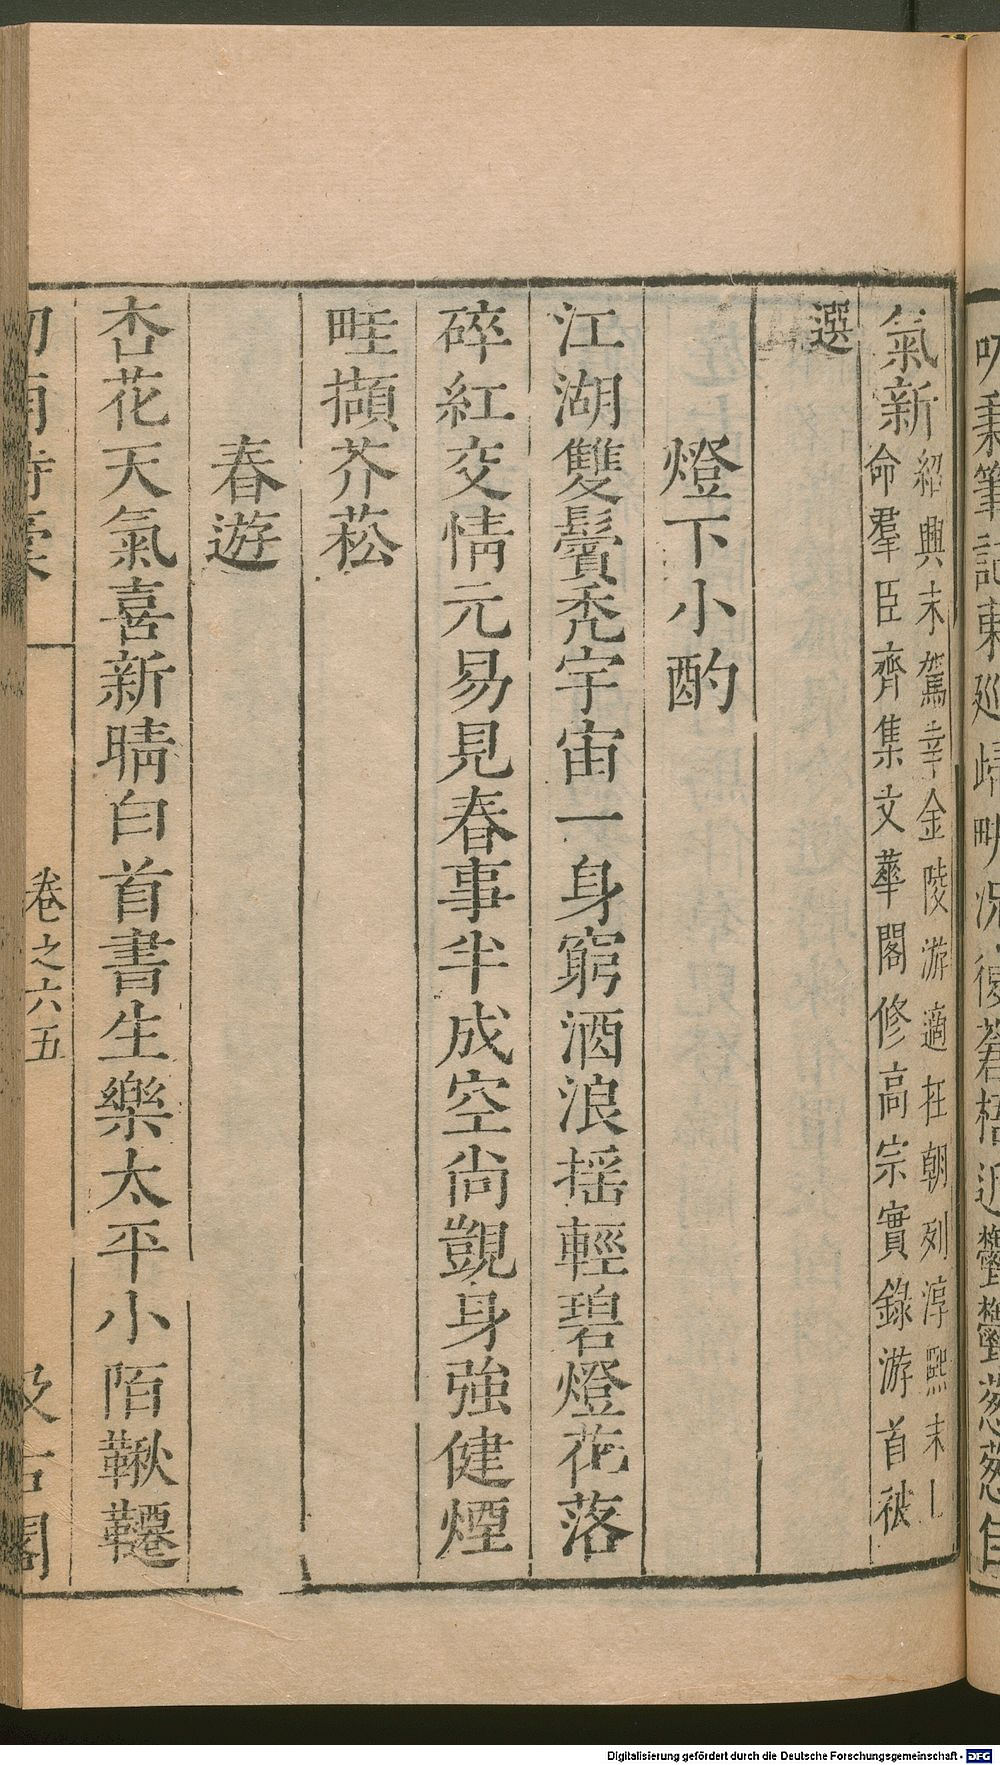 吹秉筆記東巡歸畊況復蒼梧近鬱鬱葱葱佳
氣新
紹興末駕幸金陵游適在朝列淳熙末上
命羣臣齊集文華閣修高宗實錄游首被
選
燈下小酌
江湖雙鬢禿宇宙一身窮酒浪搖輕碧燈花落
碎紅交情元易見春事半成空尚覬身強健煙
畦擷芥菘
春遊
杏花天氣喜新晴白首書生樂太平小陌鞦韆
卷之六五
汲古閣
Digitalisierung gefördert durch die Deutsche Forschungsgemeinschaft - DFG